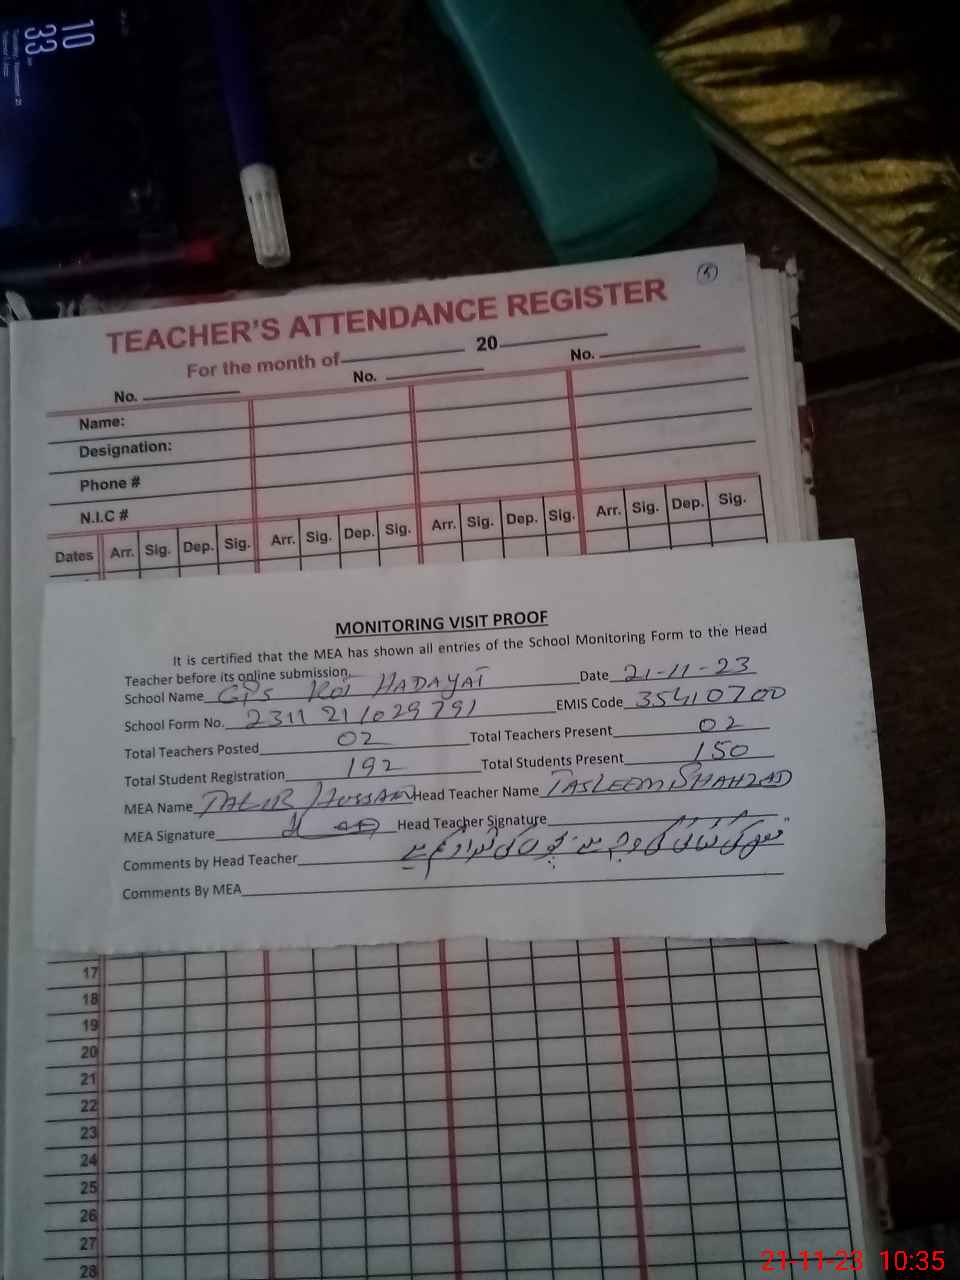 10
33
Tuesday, November 21
5
TEACHER'S ATTENDANCE REGISTER
For the month of 20
No. No. No.
Name:
Designation:
Phone #
N.I.C #
Dates Arr. Sig. Dep. Sig. Arr. Sig. Dep. Sig. Arr. Sig. Dep. Sig. Arr. Sig. Dep. Sig.
MONITORING VISIT PROOF
It is certified that the MEA has shown all entries of the School Monitoring Form to the Head
Teacher before its online submission.
School Name GPS KOT HADAYAT Date 21-11-23
School Form No. 231121/029791 EMIS Code 35410700
Total Teachers Posted 02 Total Teachers Present 02
Total Student Registration 192 Total Students Present 150
MEA Name TAHIR HUSSAIN Head Teacher Name TASLEEM SHAHZAD
MEA Signature Head Teacher Signature
Comments by Head Teacher کی کی وجہ سے بچوں کی تعداد کم ہے
Comments By MEA
17
18
19
20
21
22
23
24
25
26
27
28
21-11-23 10:35